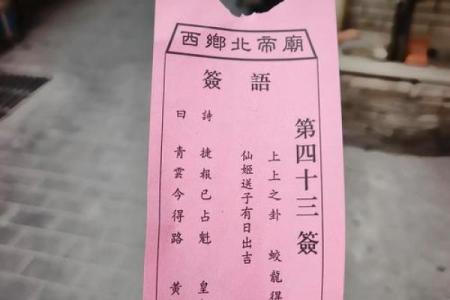 西鄉北帝廟
簽語
第四十三簽
上上之卦 蛟龍得
仙姬送子有日出吉
詩 捷報已占魁 皇
曰 青雲今得路 黃